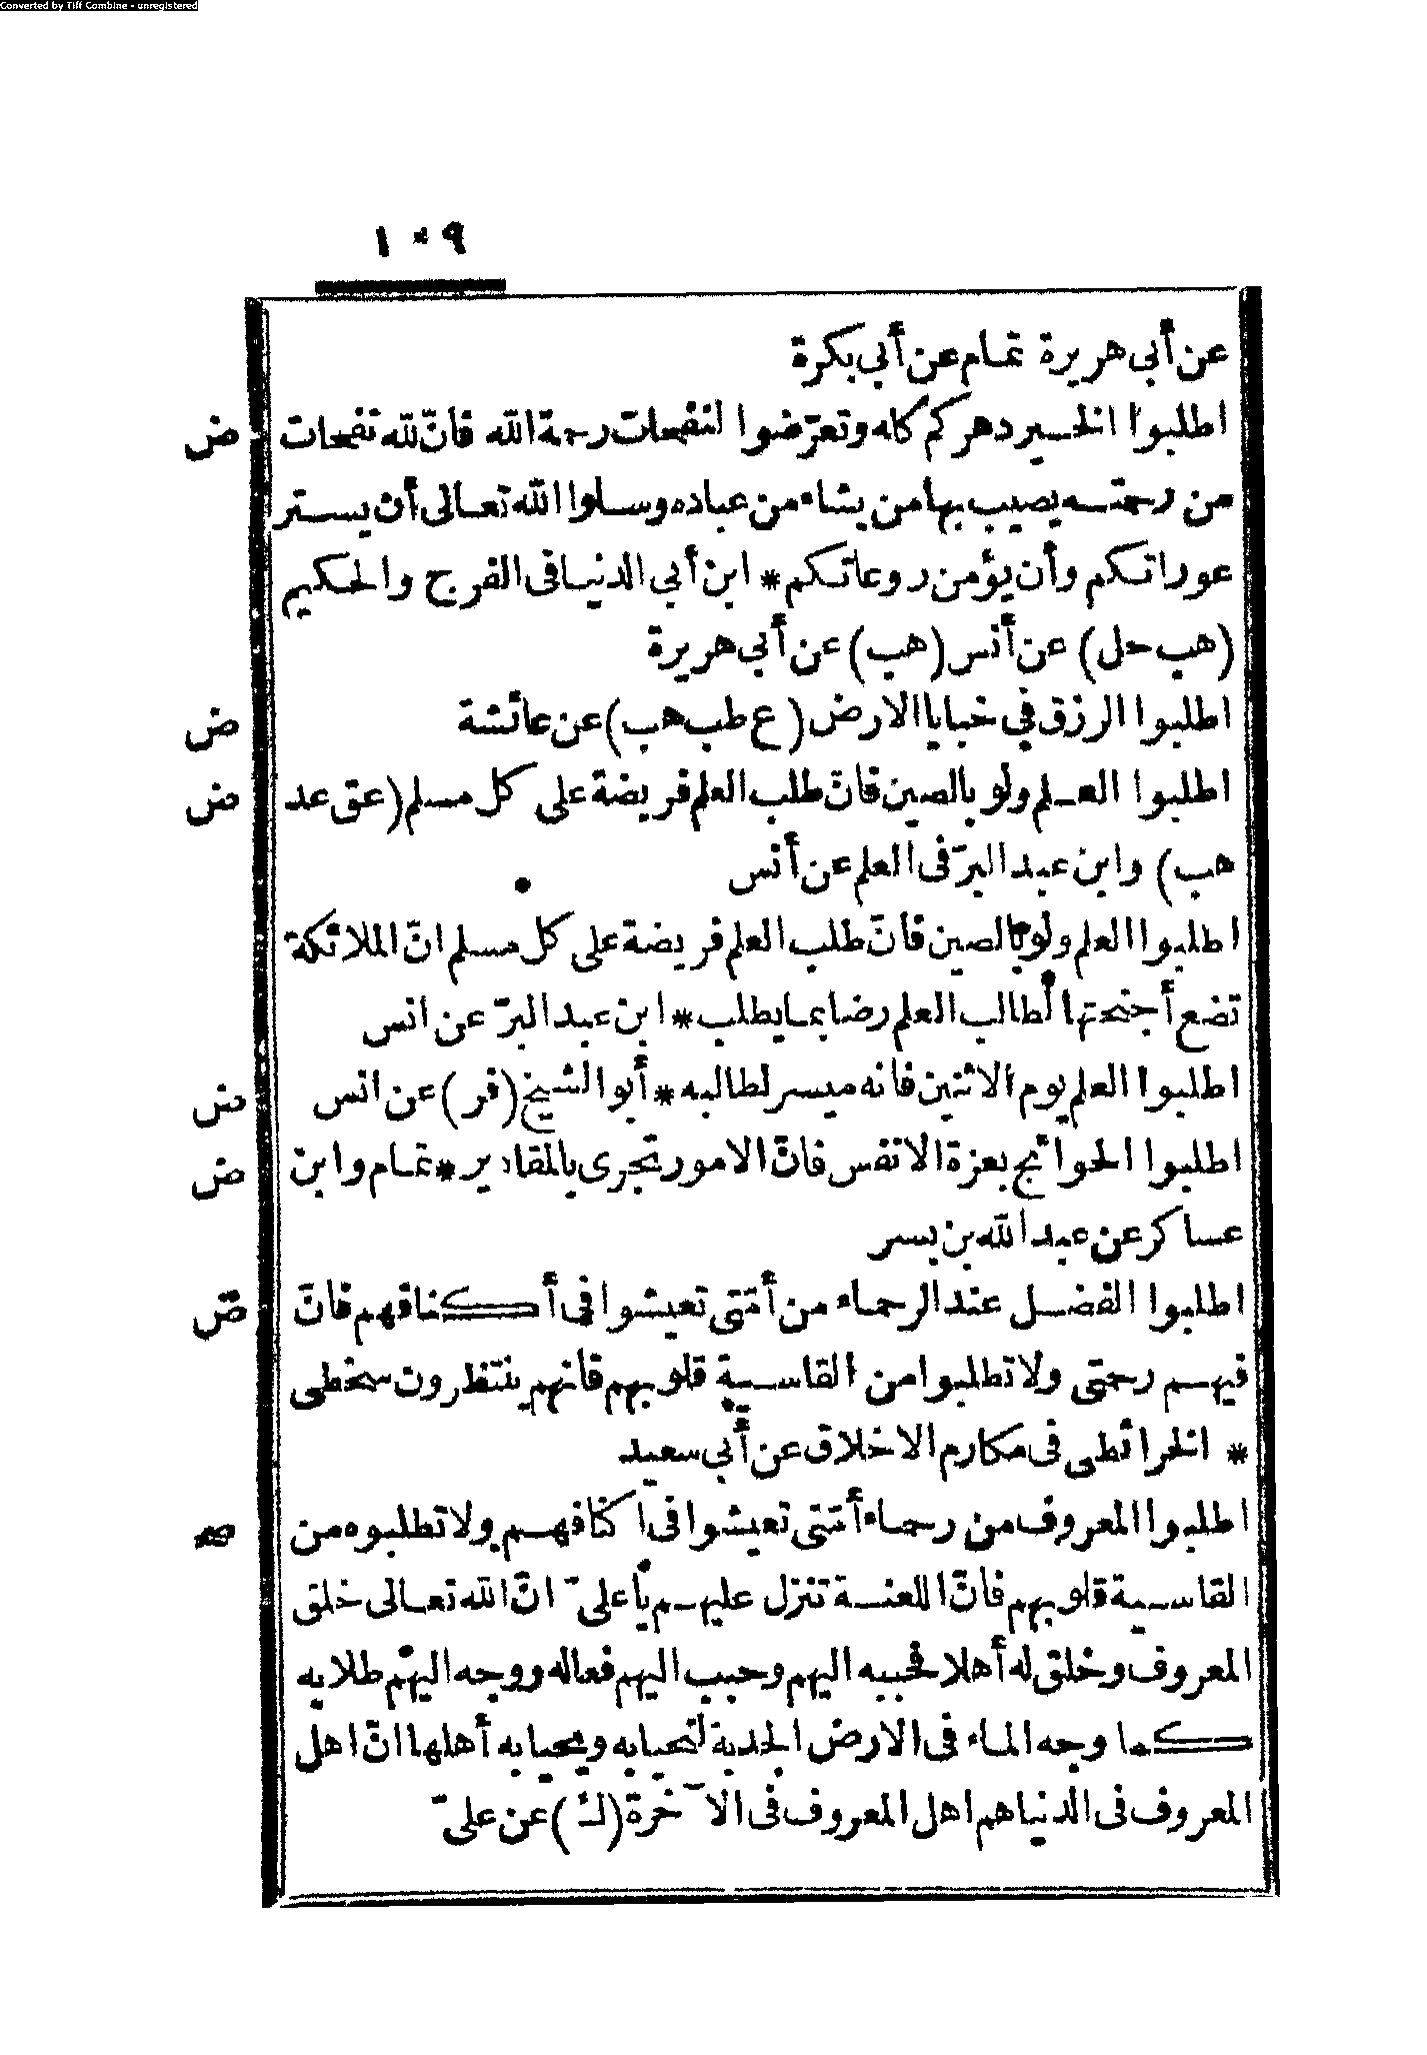 Converted by Tiff Combine - unregistered
١٠٩
عن أبي هريرة تمام عن أبي بكرة
اطلبوا الخير دهركم كله وتعرّضوا لنفحات رحمة الله فانّ لله نفحات ض
من رحمته يصيب بها من يشاء من عباده وسلوا الله تعالى أن يستر
عوراتكم وأن يؤمن روعاتكم * ابن أبي الدنيا فى الفرج والحكيم
(هب حل) عن أنس (هب) عن أبي هريرة
اطلبوا الرزق في خبايا الارض (ع طب هب) عن عائشة ض
اطلبوا العلم ولو بالصين فانّ طلب العلم فريضة على كل مسلم (عق عد ض
هب) وابن عبد البرّ فى العلم عن أنس
اطلبوا العلم ولو بالصين فانّ طلب العلم فريضة على كل مسلم انّ الملائكة
تضع أجنحتها لطالب العلم رضا بما يطلب * ابن عبد البرّ عن انس
اطلبوا العلم يوم الاثنين فانه ميسر لطالبه * أبو الشيخ (فر) عن انس ض
اطلبوا الحوائج بعزة الانفس فانّ الامور تجرى بالمقادير * تمام وابن ض
عساكر عن عبد الله بن بسر
اطلبوا الفضل عند الرحماء من أمّتى تعيشوا في أكنافهم فانّ ض
فيهم رحمتى ولا تطلبوا من القاسية قلوبهم فانهم ينتظرون سخطى
* الخرائطى فى مكارم الاخلاق عن أبي سعيد
اطلبوا المعروف من رحماء أمّتى تعيشوا فى اكنافهم ولا تطلبوه من صح
القاسية قلوبهم فانّ اللعنة تنزل عليهم يا علىّ انّ الله تعالى خلق
المعروف وخلق له أهلا فحببه اليهم وحبب اليهم فعاله ووجه اليهم طلابه
كما وجه الماء فى الارض الجدبة لتحيا به ويحيا به أهلها انّ اهل
المعروف فى الدنيا هم اهل المعروف فى الآخرة (ك) عن علىّ